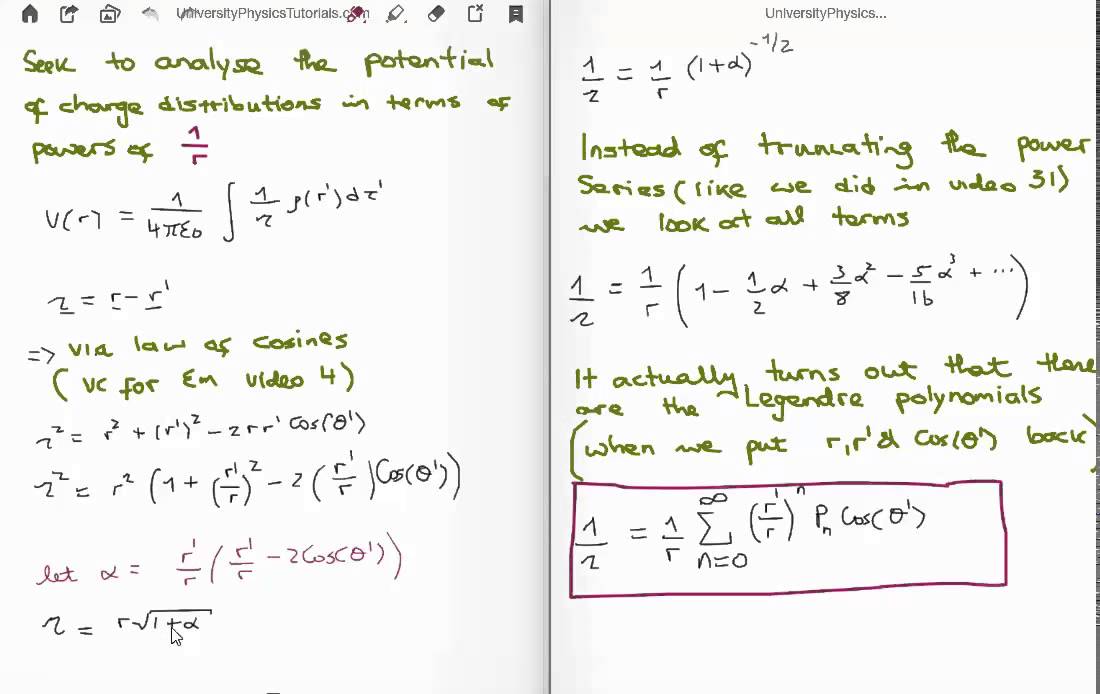 UniversityPhysicsTutorials.com
Seek to analyse the potential
of charge distributions in terms of
powers of 1/r
V(r) = 1/4πε0 ∫ 1/r ρ(r') dτ'
r = r - r'
=> via law of cosines
(VC for Em video 4)
r² = r² + (r')² - 2rr' cos(θ')
r² = r² (1 + (r'/r)² - 2(r'/r) Cos(θ'))
let α = r'/r (r'/r - 2cos(θ'))
r = r√1+α
UniversityPhysics...
1/r = 1/r (1+α)^-1/2
Instead of truncating the power
Series (like we did in video 31)
we look at all terms
1/r = 1/r (1 - 1/2 α + 3/8 α² - 5/16 α³ + ...)
It actually turns out that there
are the Legendre polynomials
(when we put r, r' & Cos(θ') back)
1/r = 1/r ∑ n=0 ∞ (r'/r)^n Pn Cos(θ')